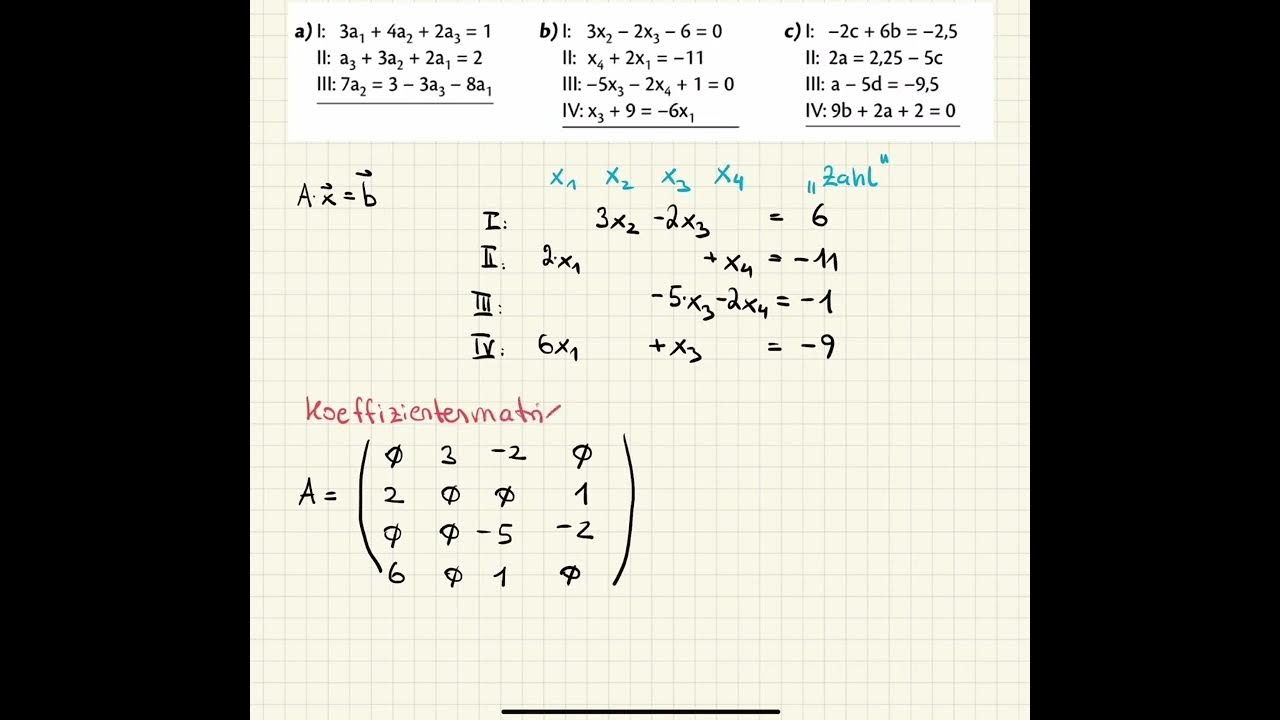 a) I: 3a₁ + 4a₂ + 2a₃ = 1
II: a₃ + 3a₂ + 2a₁ = 2
III: 7a₂ = 3 − 3a₃ − 8a₁
b) I: 3x₂ − 2x₃ − 6 = 0
II: x₄ + 2x₁ = −11
III: −5x₃ − 2x₄ + 1 = 0
IV: x₃ + 9 = −6x₁
c) I: −2c + 6b = −2,5
II: 2a = 2,25 − 5c
III: a − 5d = −9,5
IV: 9b + 2a + 2 = 0
A·x⃗ = b⃗
x₁ x₂ x₃ x₄ „Zahl"
I: 3x₂ −2x₃ = 6
II: 2·x₁ + x₄ = −11
III: −5·x₃ −2x₄ = −1
IV: 6x₁ + x₃ = −9
Koeffizientenmatrix
A =
0 3 −2 0
2 0 0 1
0 0 −5 −2
6 0 1 0